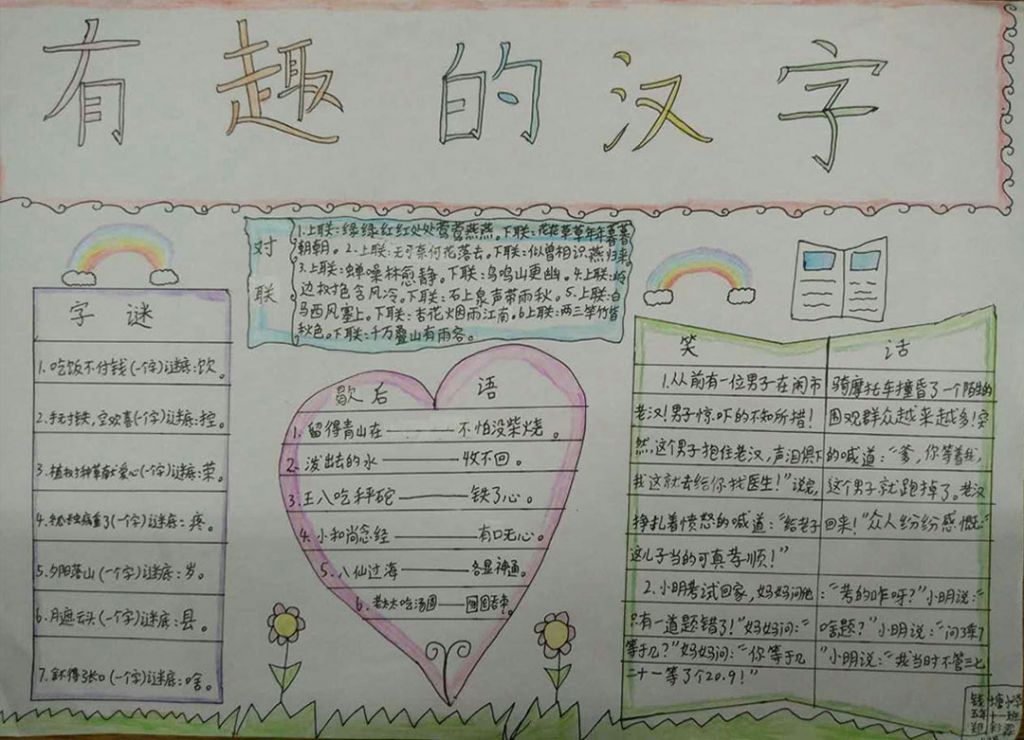 有趣的汉字
对联
1.上联:绿绿红红处处莺莺燕燕。下联:花花草草年年暮暮
朝朝。2.上联:无可奈何花落去。下联:似曾相识燕归来。
3.上联:蝉噪林愈静。下联:鸟鸣山更幽。4.上联:岭
边树色含风冷。下联:石上泉声带雨秋。5.上联:白
马西风塞上。下联:杏花烟雨江南。6上联:两三竿竹皆
秋色。下联:千万叠山有雨容。
字谜
1.吃饭不付钱(一字)谜底:饮。
2.空欢喜(一字)谜底:控。
3.爱心(一字)谜底:荣。
4.病重了(一字)谜底:疼。
5.夕阳落山(一字)谜底:岁。
6.月遮云头(一字)谜底:县。
7.口(一字)谜底:啥。
歇后语
1.留得青山在——不怕没柴烧。
2.泼出去的水——收不回。
3.王八吃秤砣——铁了心。
4.小和尚念经——有口无心。
5.八仙过海——各显神通。
6.老太太吃汤圆——囫囵吞枣。
笑话
1.从前有一位男子在闹市骑摩托车撞昏了一个陌生的
老汉!男子惊吓的不知所措!围观群众越来越多!突
然,这个男子抱住老汉,声泪俱下的喊道:“爹,你等着我,
我这就去给你找医生!”说完,这个男子就跑掉了。老汉
挣扎着愤怒的喊道:“给老子回来!”众人纷纷感慨:“
这儿子当的可真孝顺!”
2.小明考试回家,妈妈问他:“考的咋呀?”小明说:“
只有一道题错了!”妈妈问:“啥题?”小明说:“问3乘7
等于几?”妈妈问:“你等于几”小明说:“我当时不管三七
二十一等了个20.9!”